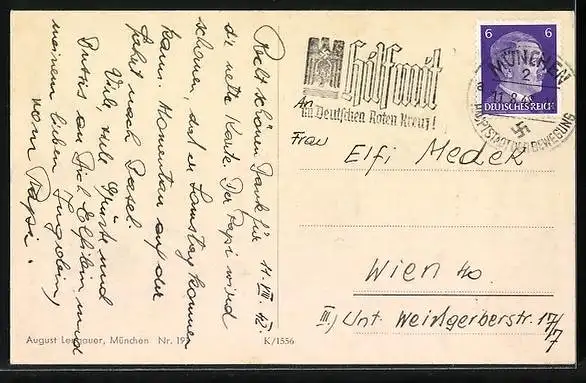 11. VIII. 42.
Recht schönen Dank für
die nette Karte. Der Papi wird
schauen, daß er Samstag kommen
kann. Momentan auf der
Fahrt nach Basel
Viele, viele Grüße und
Bussis an Dich Elfilein und
meinem lieben
vom Papi.
August Lengauer, München Nr. 195
K/1556
Hilf mit
im Deutschen Roten Kreuz!
6 6
DEUTSCHES REICH
MÜNCHEN
2
HAUPTSTADT DER BEWEGUNG
An
Frau Elfi Medek
Wien 40.
III) Unt. Weißgerberstr. 17/7